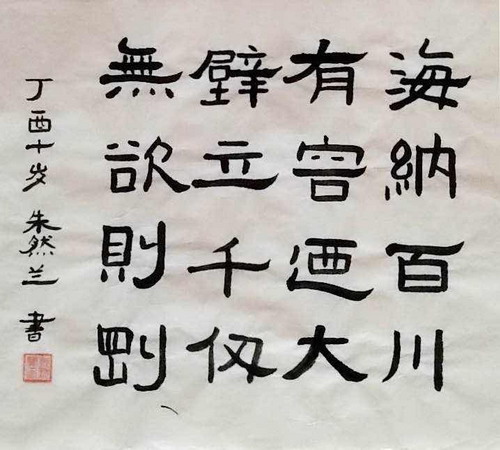 海納百川
有容迺大
壁立千仞
無欲則剛
丁酉十岁 朱然兰 書